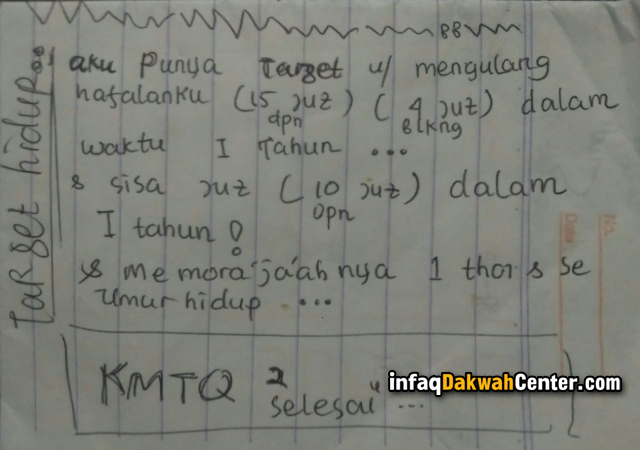 Target hidup...
aku punya Target u/ mengulang
hafalanku (15 juz) (4 juz) dalam
dpn Blkng
waktu 1 Tahun ...
& sisa juz (10 juz) dalam
Dpn
1 tahun !
& memora'ja'ahnya 1 thn & se
Umur hidup ...
KMTQ 2
selesai" ...
infaqDakwahCenter.com
No.
Date